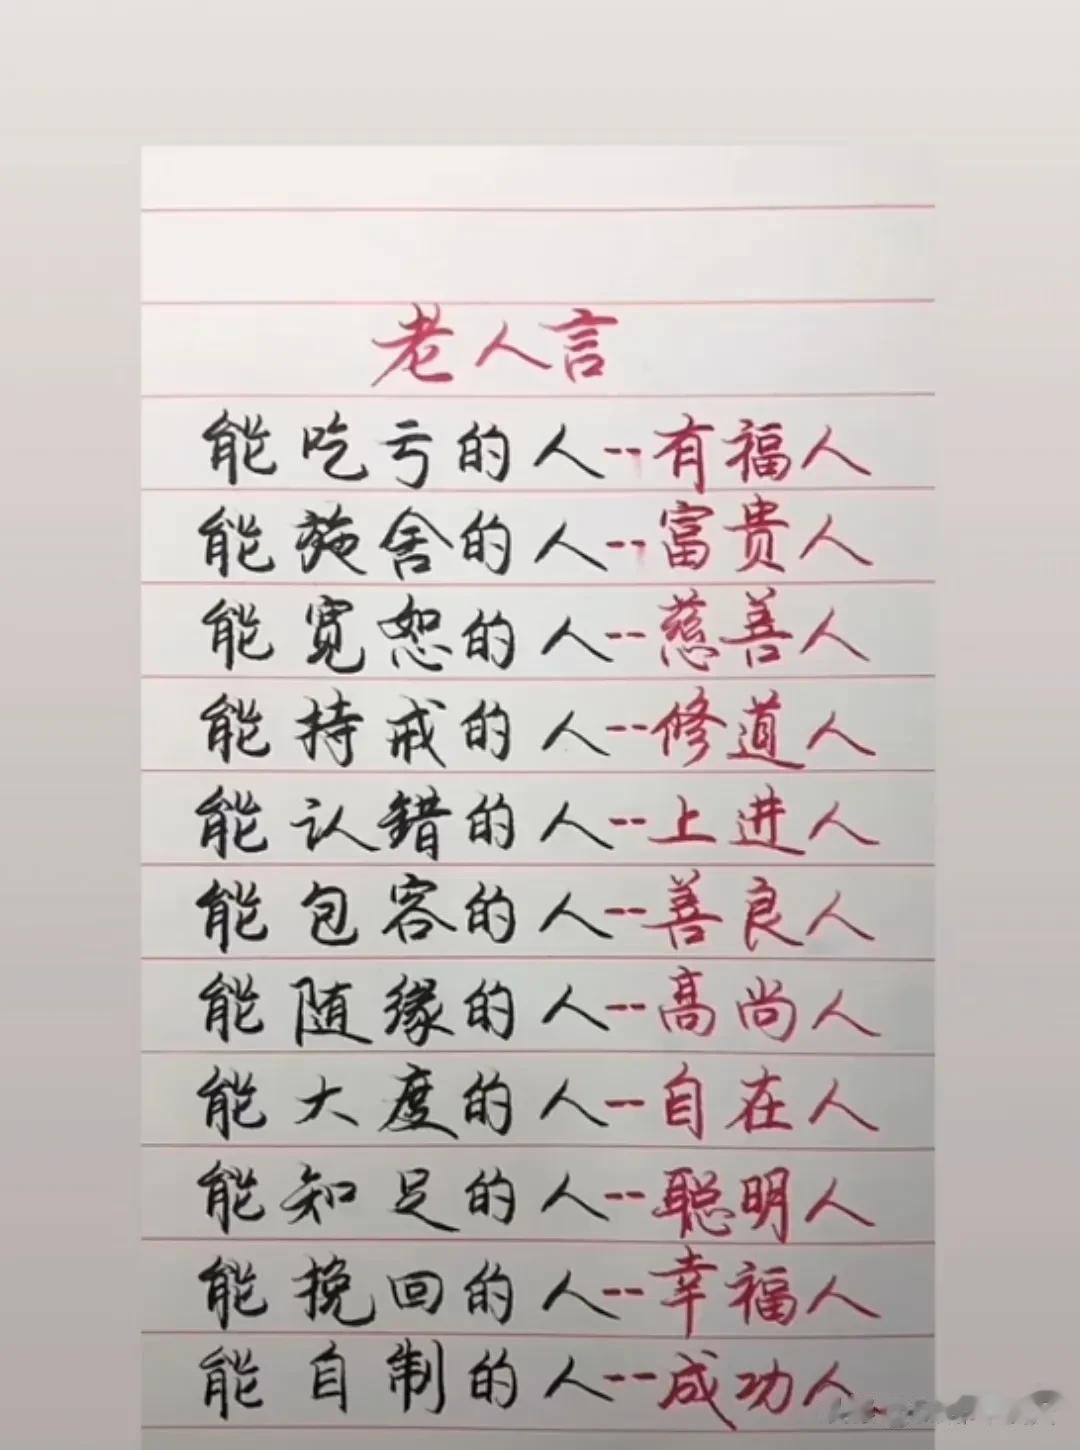 老人言
能吃亏的人--有福人
能施舍的人--富贵人
能宽恕的人--慈善人
能持戒的人--修道人
能认錯的人--上进人
能包容的人--善良人
能随缘的人--高尚人
能大度的人--自在人
能知足的人--聪明人
能挽回的人--幸福人
能自制的人--成功人